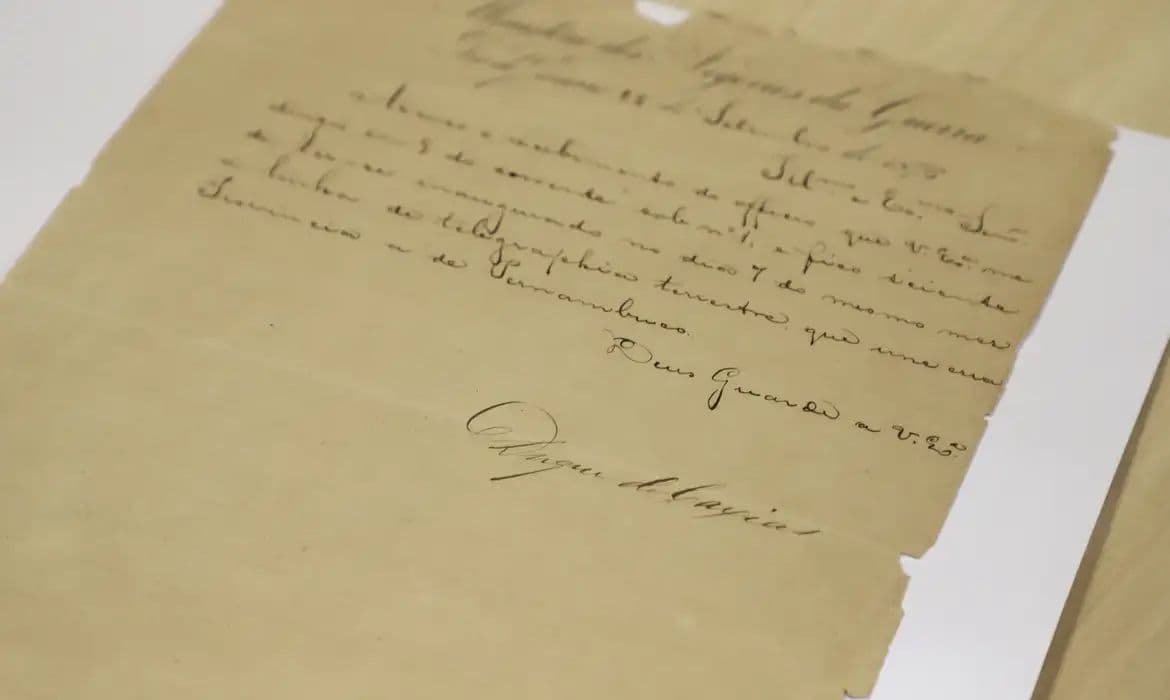 dos Negocios da Guerra
de Setembro de
Illmo e Exmo Senr.
o recebimento do officio que V. Exª me
em 9 do corrente sob nº 1, e fico sciente
de ter-se inaugurado no dia 7 do mesmo mez
a linha de telegraphia terrestre que une essa
Provincia a de Pernambuco.
Deus Guarde a V. Exª.
Duque de Caxias